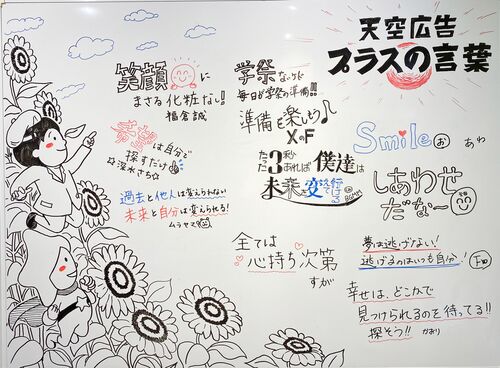 天空広告
プラスの言葉
笑顔に
まさる化粧ない!
稲倉誠
希望は自分で
探すだけ
☆深水さち☆
過去と他人は変えられない
未来と自分は変えられる!
ムラヤマ
学祭ないけど
毎日が学祭の準備!!
準備を楽しもう♪
XoF
たった3秒あれば僕達は
未来を変えて行ける
全ては
心持ち次第
すが
Smile
お あわ
しあわせ
だなー
夢は逃げない!
逃げるのはいつも自分!
下田
幸せは、どこかで
見つけられるのを待ってる!!
探そう!! かおり